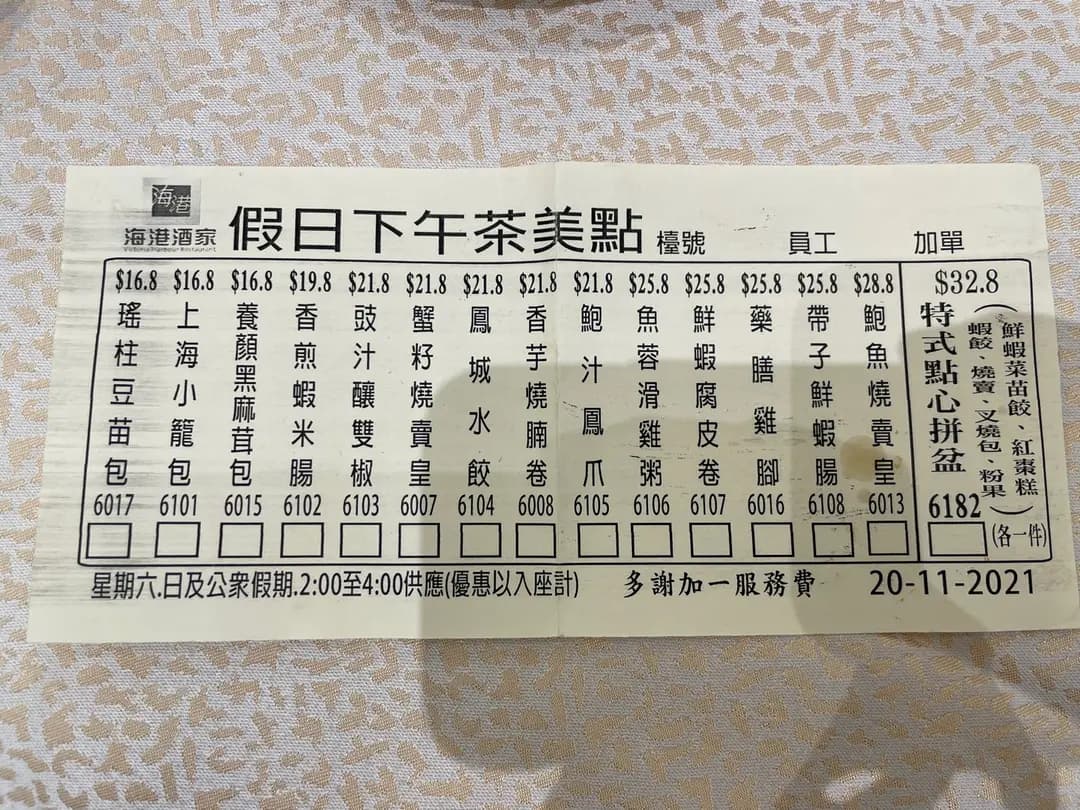 海港
海港酒家
Victoria Harbour Restaurant
假日下午茶美點
檯號
員工
加單
$16.8
瑤柱豆苗包
6017
$16.8
上海小籠包
6101
$16.8
養顏黑麻茸包
6015
$19.8
香煎蝦米腸
6102
$21.8
豉汁釀雙椒
6103
$21.8
蟹籽燒賣皇
6007
$21.8
鳳城水餃
6104
$21.8
香芋燒腩卷
6008
$21.8
鮑汁鳳爪
6105
$25.8
魚蓉滑雞粥
6106
$25.8
鮮蝦腐皮卷
6107
$25.8
藥膳雞腳
6016
$25.8
帶子鮮蝦腸
6108
$28.8
鮑魚燒賣皇
6013
$32.8
特式點心拼盆
(鮮蝦菜苗餃、紅棗糕
蝦餃、燒賣、叉燒包、粉果)
6182
(各一件)
星期六.日及公眾假期.2:00至4:00供應(優惠以入座計)
多謝加一服務費
20-11-2021